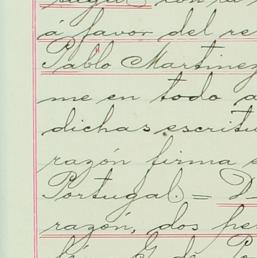 á favor del re
Pablo Martinez
me en todo a
dichas escritu
razón firma e
Portugal. = D
razón, dos pe